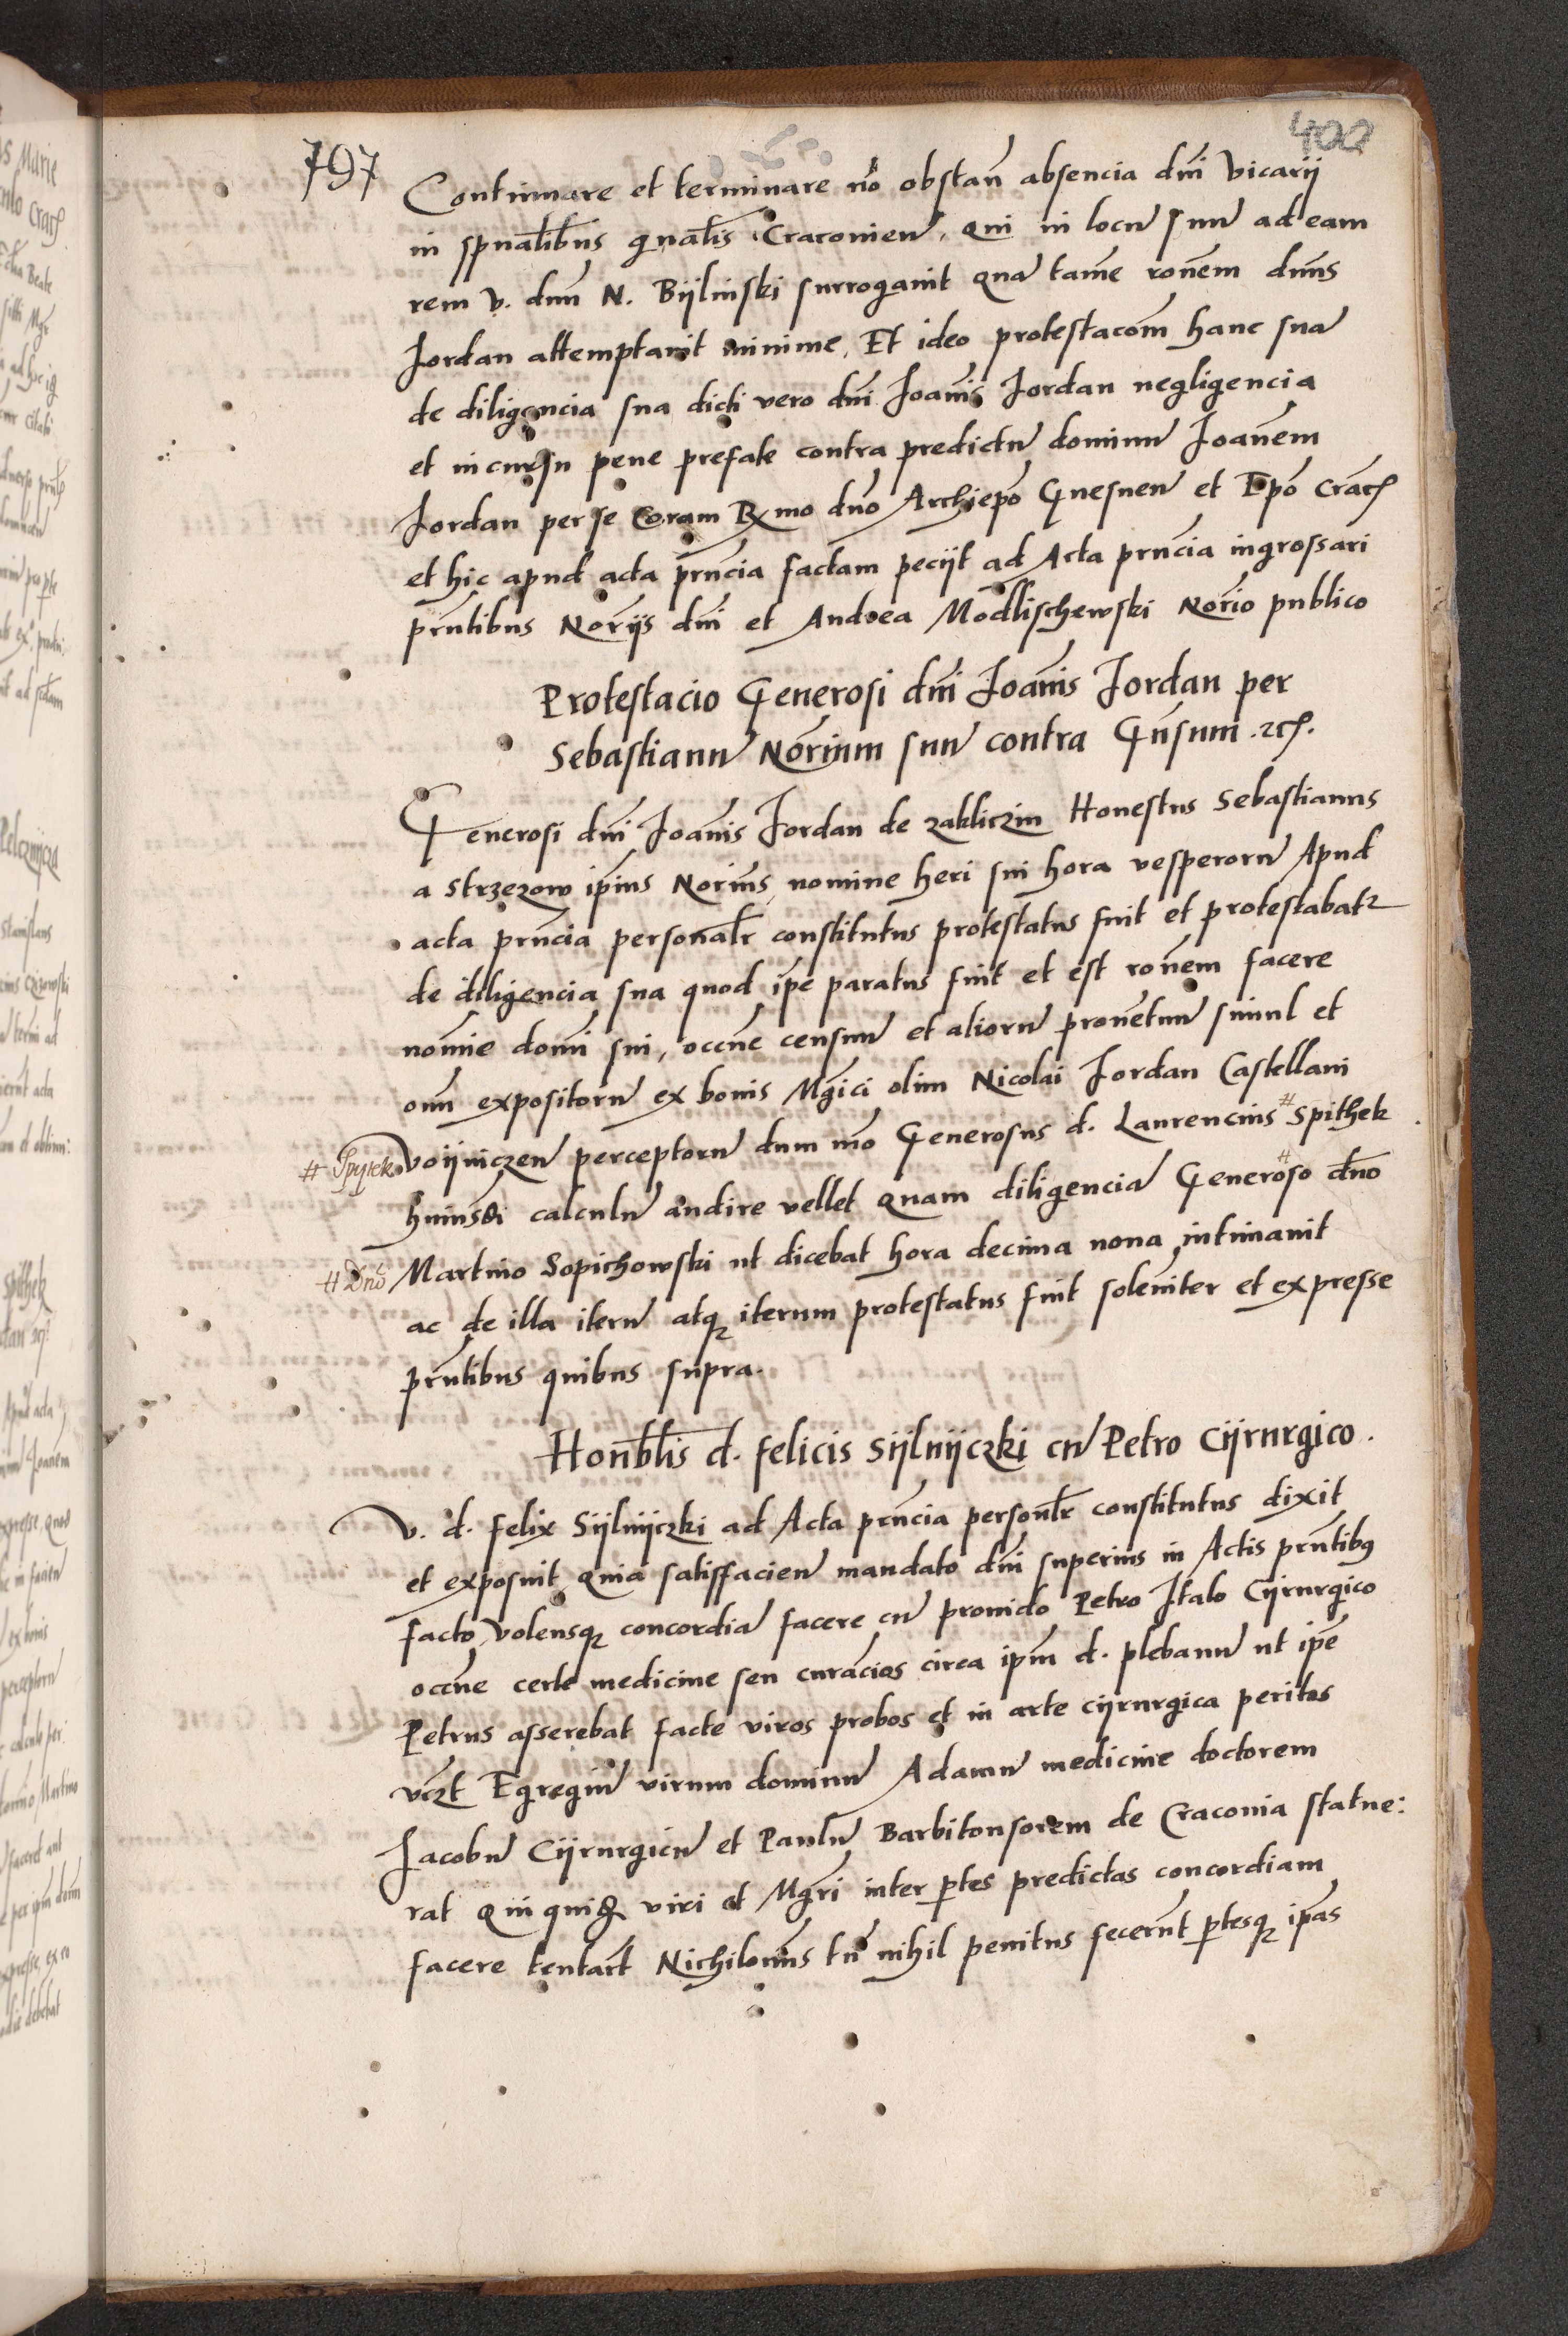 797
400
Continuare et terminare nō obstan̄ absencia dn̄i Vicarij
in spūalibus gn̄alis Cracouien̄, qui in locū suū ad eam
rem v. dnū N. Bijlinski surrogauit quā tamē ron̄em dn̄us
Jordan attemptauit minime, Et ideo protestacōm hanc suā
de diligencia sua dicti vero dn̄i Joan̄is Jordan negligencia
et incursu pene prefate contra predictū dominū Joan̄em
Jordan per se Coram Rx̄mo dn̄o Archiep̄o Gnesnen̄ et Ep̄o Crac̄
et hic apud acta prn̄cia factam pecijt ad Acta prn̄cia ingrossari
prn̄tibus Nor̄ijs dn̄i et Andrea Modlischewski Nor̄io publico
Protestacio Generosi dn̄i Joan̄is Jordan per
Sebastianū Nor̄ium suū contra Gn̄sum .etc.
Generosi dn̄i Joan̄is Jordan de zakliczin Honestus Sebastianus
a Strzezow ip̄ius Nor̄ius, nomine heri sui hora vesperorū Apud
acta prn̄cia personalr̄ constitutus protestatus fuit et protestabatr
de diligencia sua quod ip̄e paratus fuit et est ron̄em facere
nomīe domī sui, occn̄e censuū et aliorū prouētuū simul et
oīm expositorū ex bonis Mḡici olim Nicolai Jordan Castellani
# Spytek Voijniczen̄ perceptorū dum m̄o Generosus d. Laurencius # Spithek
huiusdi calculū audire vellet Quam diligenciā Generoso # dn̄o
# Dn̄o Martino Sopichowski ut dicebat hora decima nona intimauit
ac de illa iterū atq̨ iterum protestatus fuit soleniter et expresse
prn̄tibus quibus supra.
Hon̄blis d. felicis Sijlnijczki cū Petro Cijrurgico.
V. d. felix Sijlnijczki ad Acta prn̄cia personlr̄ constitutus dixit
et exposuit quia satisfacien̄ mandato dn̄i superius in Actis prn̄tibus
facto volensq̨ concordiā facere cū prouido Petro Italo Cijrurgico
occn̄e certe medicine seu curacios circa ip̄m d. plebanū ut ip̄e
Petrus asserebat facte viros probos et in arte cijrurgica peritos
vczt Egregiū virum dominū Adamū medicine doctorem
Jacobū Cijrurgicū et Paulū Barbitonsorem de Cracouia statue:
rat Qui quidē viri et Mgr̄i inter p̄tes predictas concordiam
facere tentar̄t Nichilomīs tn̄ nihil penitus fecerūt p̄tesq̨ ip̄as